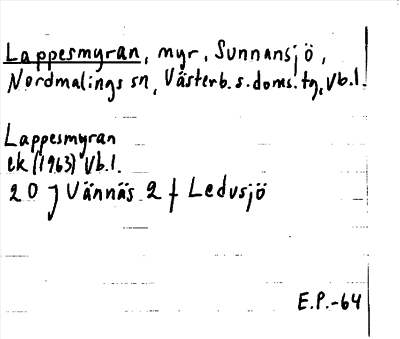 Lappesmyran, myr, Sunnansjö,
Nordmalings sn, Västerb.s.doms.tg, Vb.l.
Lappesmyran
ek (1963) Vb.l.
20 J Vännäs 2 f Ledusjö
E.P.-64